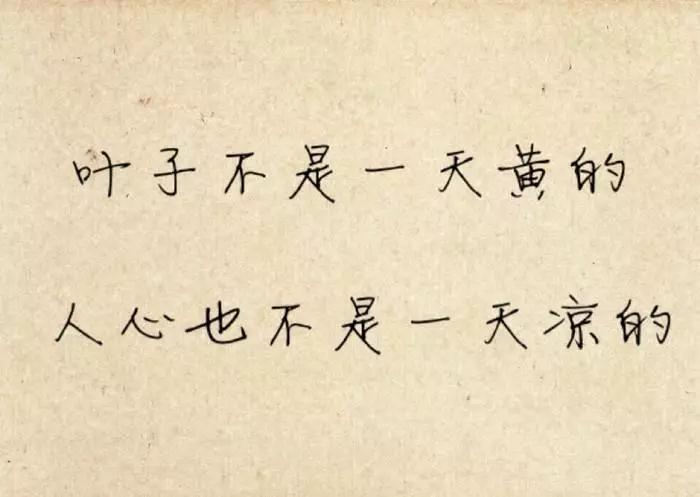 叶子不是一天黄的
人心也不是一天凉的